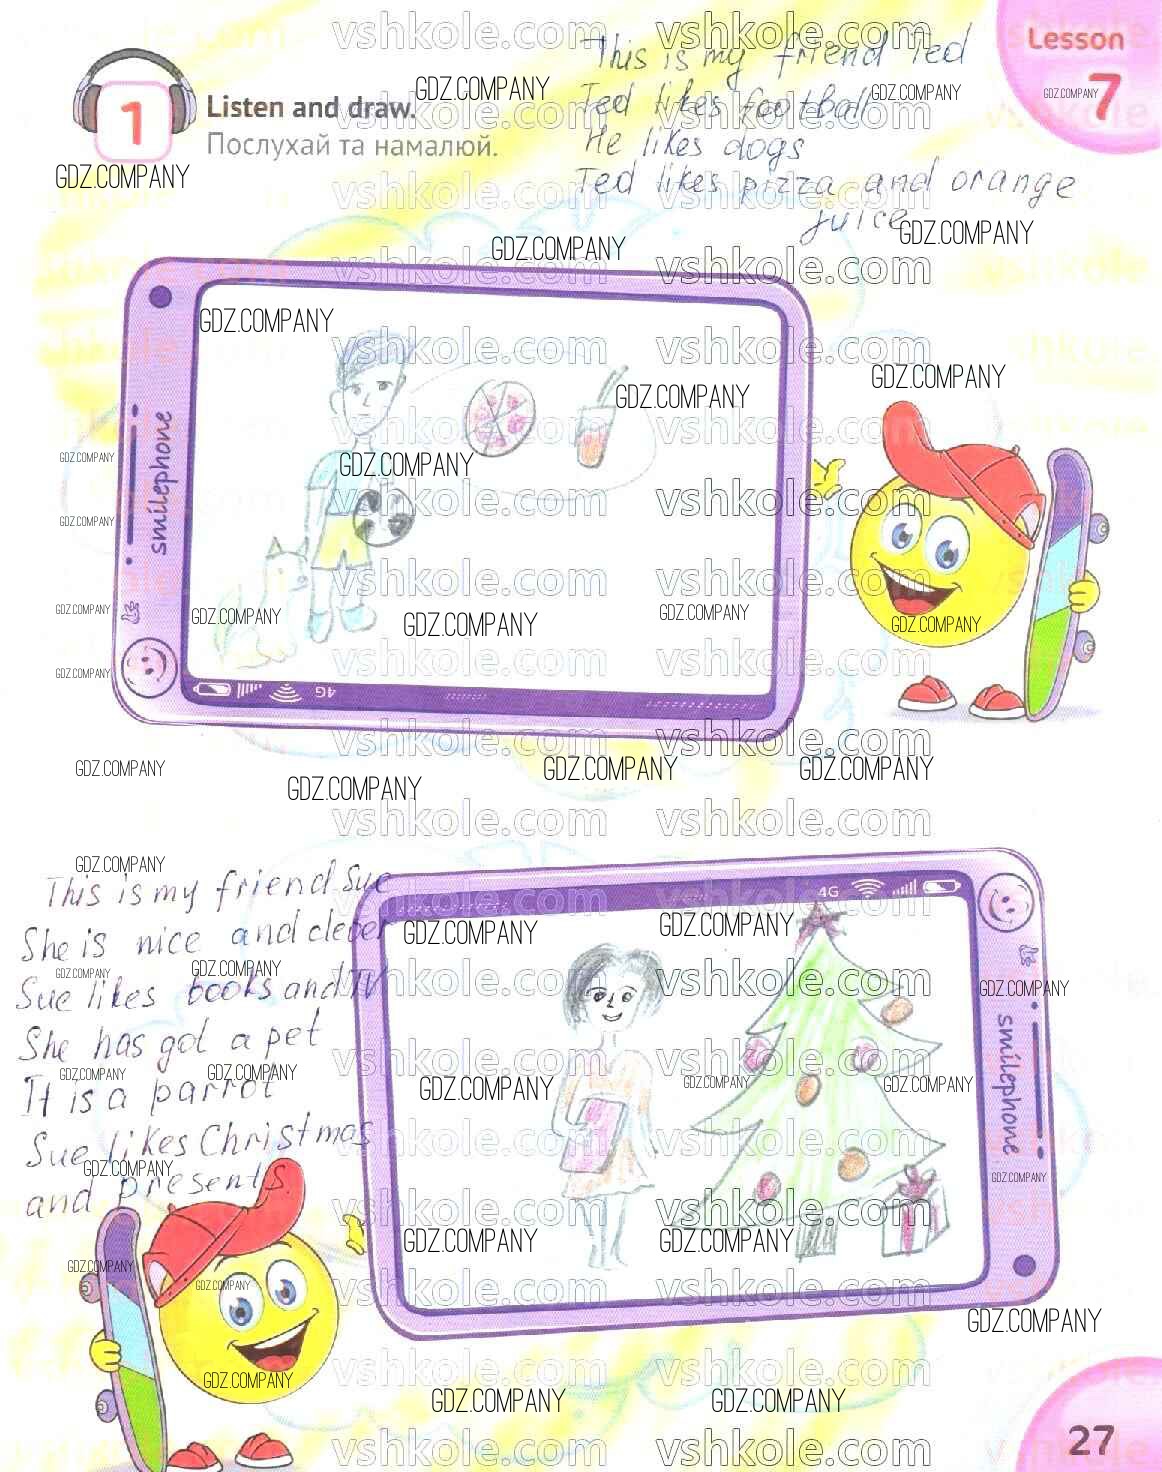 Lesson
7
1
Listen and draw.
Послухай та намалюй.
This is my friend Ted
Ted likes football
He likes dogs
Ted likes pizza and orange
juice
smilephone
4G
This is my friend Sue
She is nice and clever
Sue likes books and TV
She has got a pet
It is a parrot
Sue likes Christmas
and presents
4G
smilephone
27
vshkole.com
GDZ.COMPANY